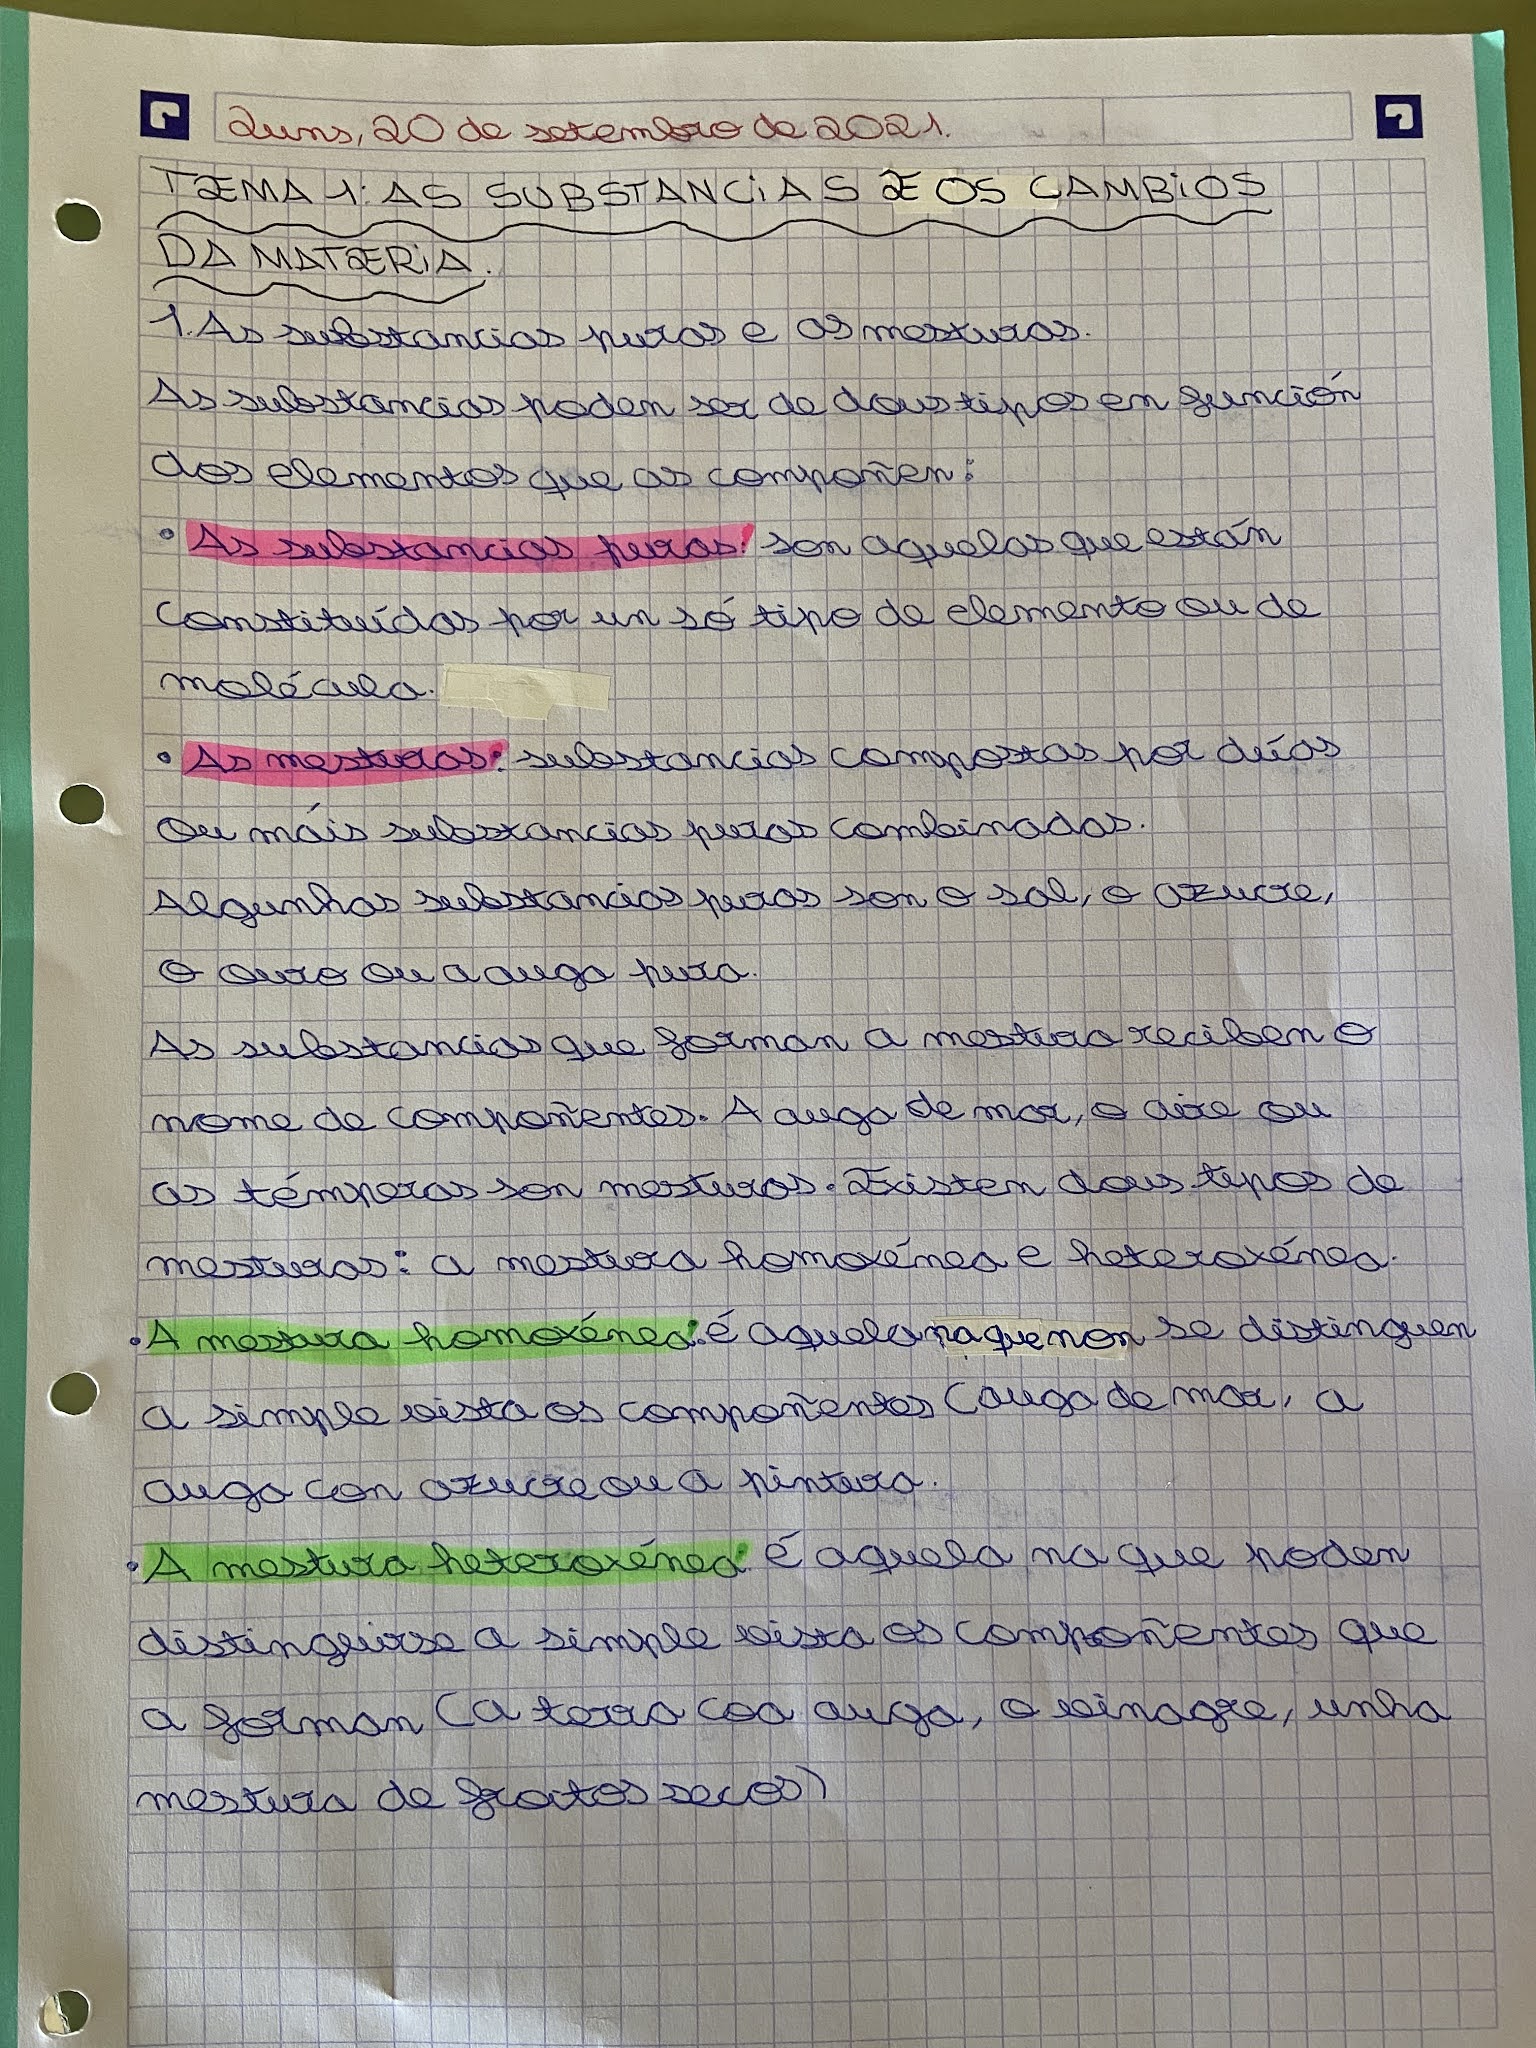 Luns, 20 de setembro de 2021.
TEMA 1: AS SUBSTANCIAS E OS CAMBIOS
DA MATERIA.
1. As substancias puras e as mesturas.
As substancias poden ser de dous tipos en función
dos elementos que as compoñen:
• As substancias puras: son aquelas que están
constituídas por un só tipo de elemento ou de
molécula.
• As mesturas: substancias compostas por dúas
ou máis substancias puras combinadas.
Algunhas substancias puras son o sal, o azucre,
o ouro ou a auga pura.
As substancias que forman a mestura reciben o
nome de compoñentes. A auga de mar, o aire ou
as témperas son mesturas. Existen dous tipos de
mesturas: a mestura homoxénea e heteroxénea.
• A mestura homoxénea: é aquela na que non se distinguen
a simple vista os compoñentes (auga de mar, a
auga con azucre ou a pintura.
• A mestura heteroxénea: é aquela na que poden
distinguirse a simple vista os compoñentes que
a forman (a terra coa auga, o vinagre, unha
mestura de froitos secos)